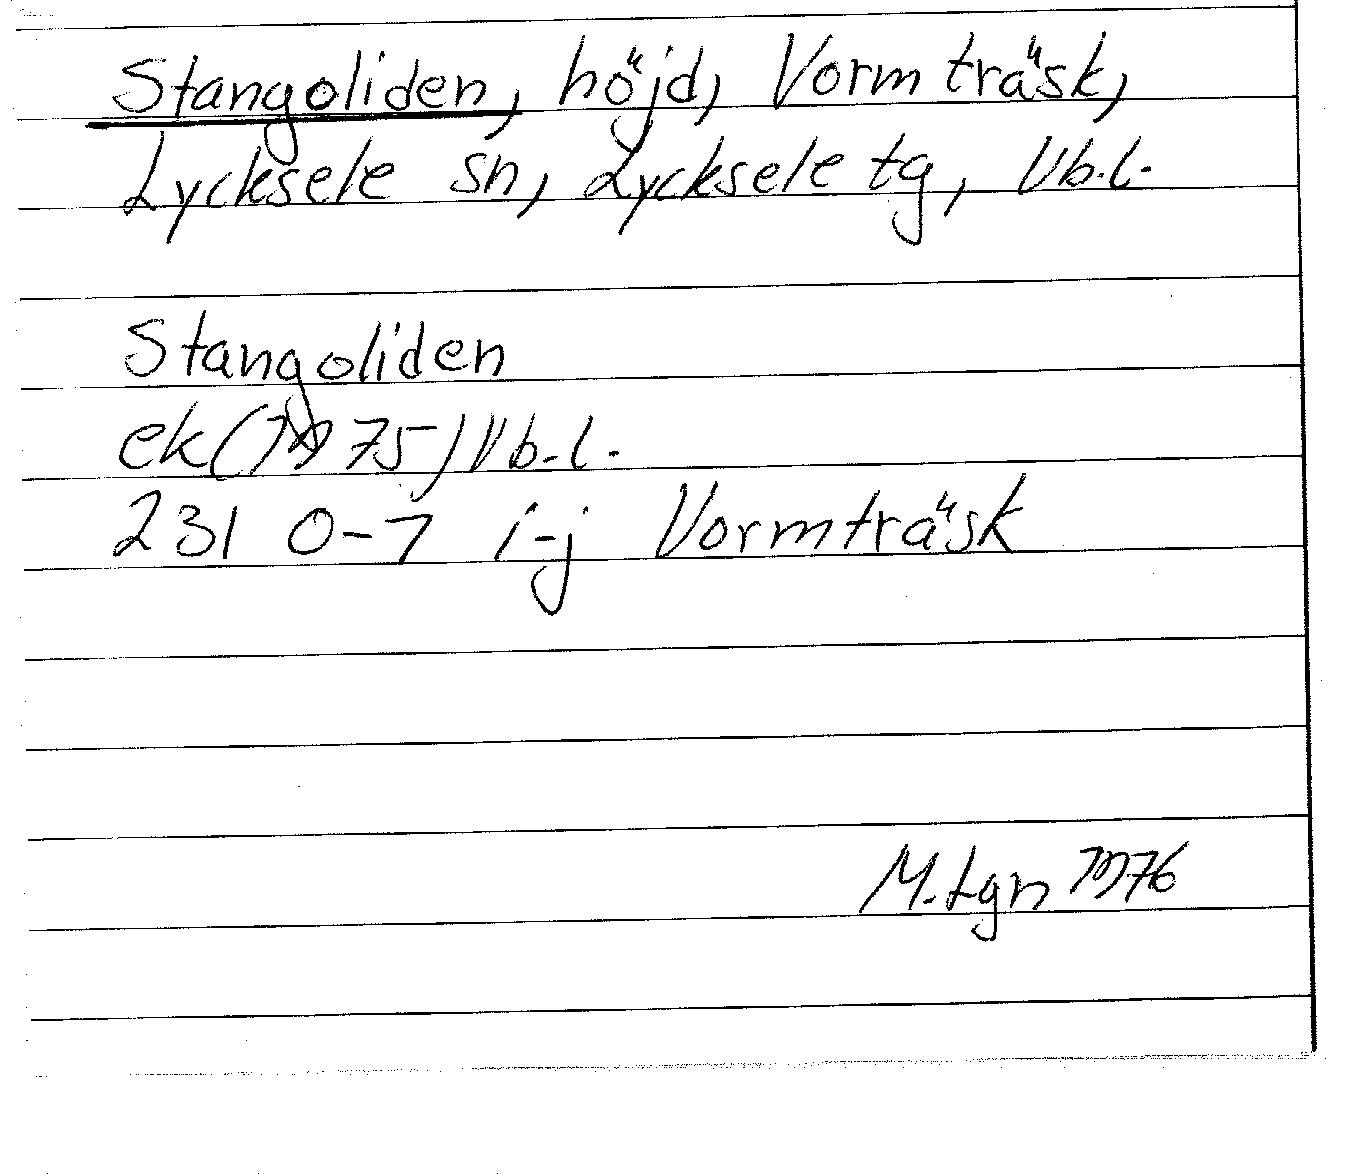 Stangoliden, höjd, Vormträsk,
Lycksele sn, Lycksele tg, Vb.l.
Stangoliden
ek(1975)Vb.l.
231 0-7 i-j Vormträsk
M.Lgn 1976